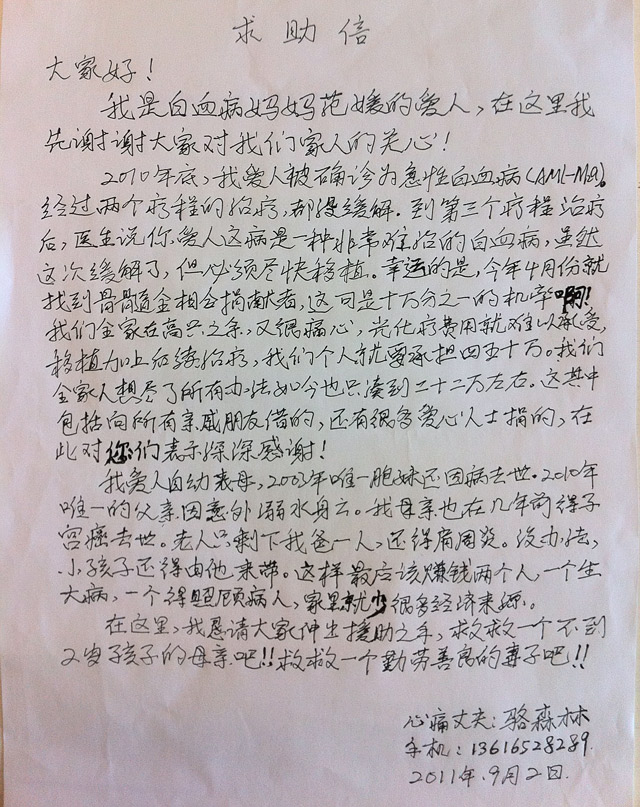 求助信
大家好！
我是白血病妈妈范媛的爱人，在这里我
先谢谢大家对我们家人的关心！
2010年底，我爱人被确诊为急性白血病(AML-M2)。
经过两个疗程的治疗，都没缓解．到第三个疗程治疗
后，医生说你爱人这病是一种非常难治的白血病，虽然
这次缓解了，但必须尽快移植。幸运的是，今年4月份就
找到骨髓全相合捐献者，这可是十万分之一的机率啊！
我们全家在高兴之余，又很痛心，光化疗费用就难以承受，
移植加上后续治疗，我们个人就要承担四五十万。我们
全家人想尽了所有办法如今也只凑到二十二万左右。这其中
包括向所有亲戚朋友借的，还有很多爱心人士捐的，在
此对您们表示深深感谢！
我爱人自幼丧母，2003年唯一胞妹还因病去世．2010年
唯一的父亲因意外溺水身亡。我母亲也在几年前得子
宫癌去世。老人只剩下我爸一人，还得肩周炎。没办法，
小孩子还得由他来带。这样最应该赚钱两个人，一个生
大病，一个得照顾病人，家里就少很多经济来源。
在这里，我恳请大家伸出援助之手，救救一个不到
2岁孩子的母亲吧!!救救一个勤劳善良的妻子吧!!
心痛丈夫：骆森林
手机：13616528289.
2011年.9月2日.